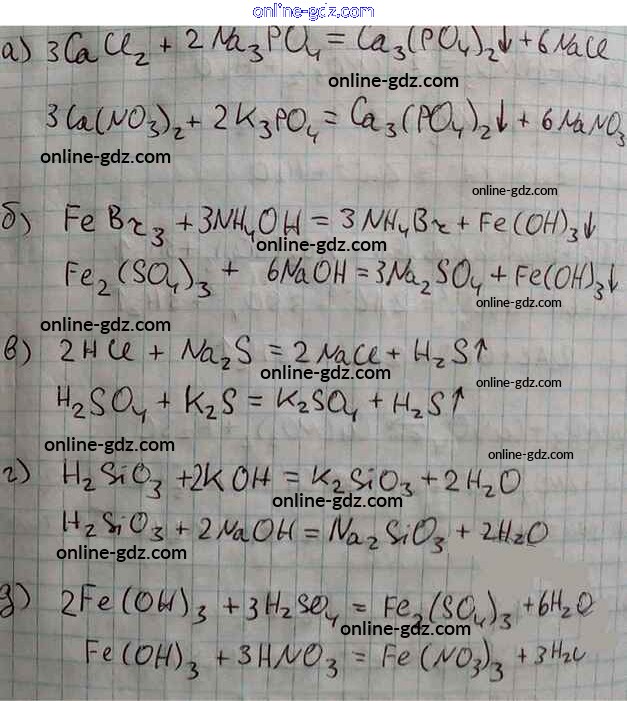 online-gdz.com
а) 3CaCl₂ + 2Na₃PO₄ = Ca₃(PO₄)₂↓ + 6NaCl
online-gdz.com
3Ca(NO₃)₂ + 2K₃PO₄ = Ca₃(PO₄)₂↓ + 6NaNO₃
online-gdz.com
online-gdz.com
б) FeBr₃ + 3NH₄OH = 3NH₄Br + Fe(OH)₃↓
online-gdz.com
Fe₂(SO₄)₃ + 6NaOH = 3Na₂SO₄ + Fe(OH)₃↓
online-gdz.com
online-gdz.com
в) 2HCl + Na₂S = 2NaCl + H₂S↑
online-gdz.com
online-gdz.com
H₂SO₄ + K₂S = K₂SO₄ + H₂S↑
online-gdz.com
online-gdz.com
г) H₂SiO₃ + 2KOH = K₂SiO₃ + 2H₂O
online-gdz.com
H₂SiO₃ + 2NaOH = Na₂SiO₃ + 2H₂O
online-gdz.com
online-gdz.com
д) 2Fe(OH)₃ + 3H₂SO₄ = Fe₂(SO₄)₃ + 6H₂O
online-gdz.com
Fe(OH)₃ + 3HNO₃ = Fe(NO₃)₃ + 3H₂O
online-gdz.com